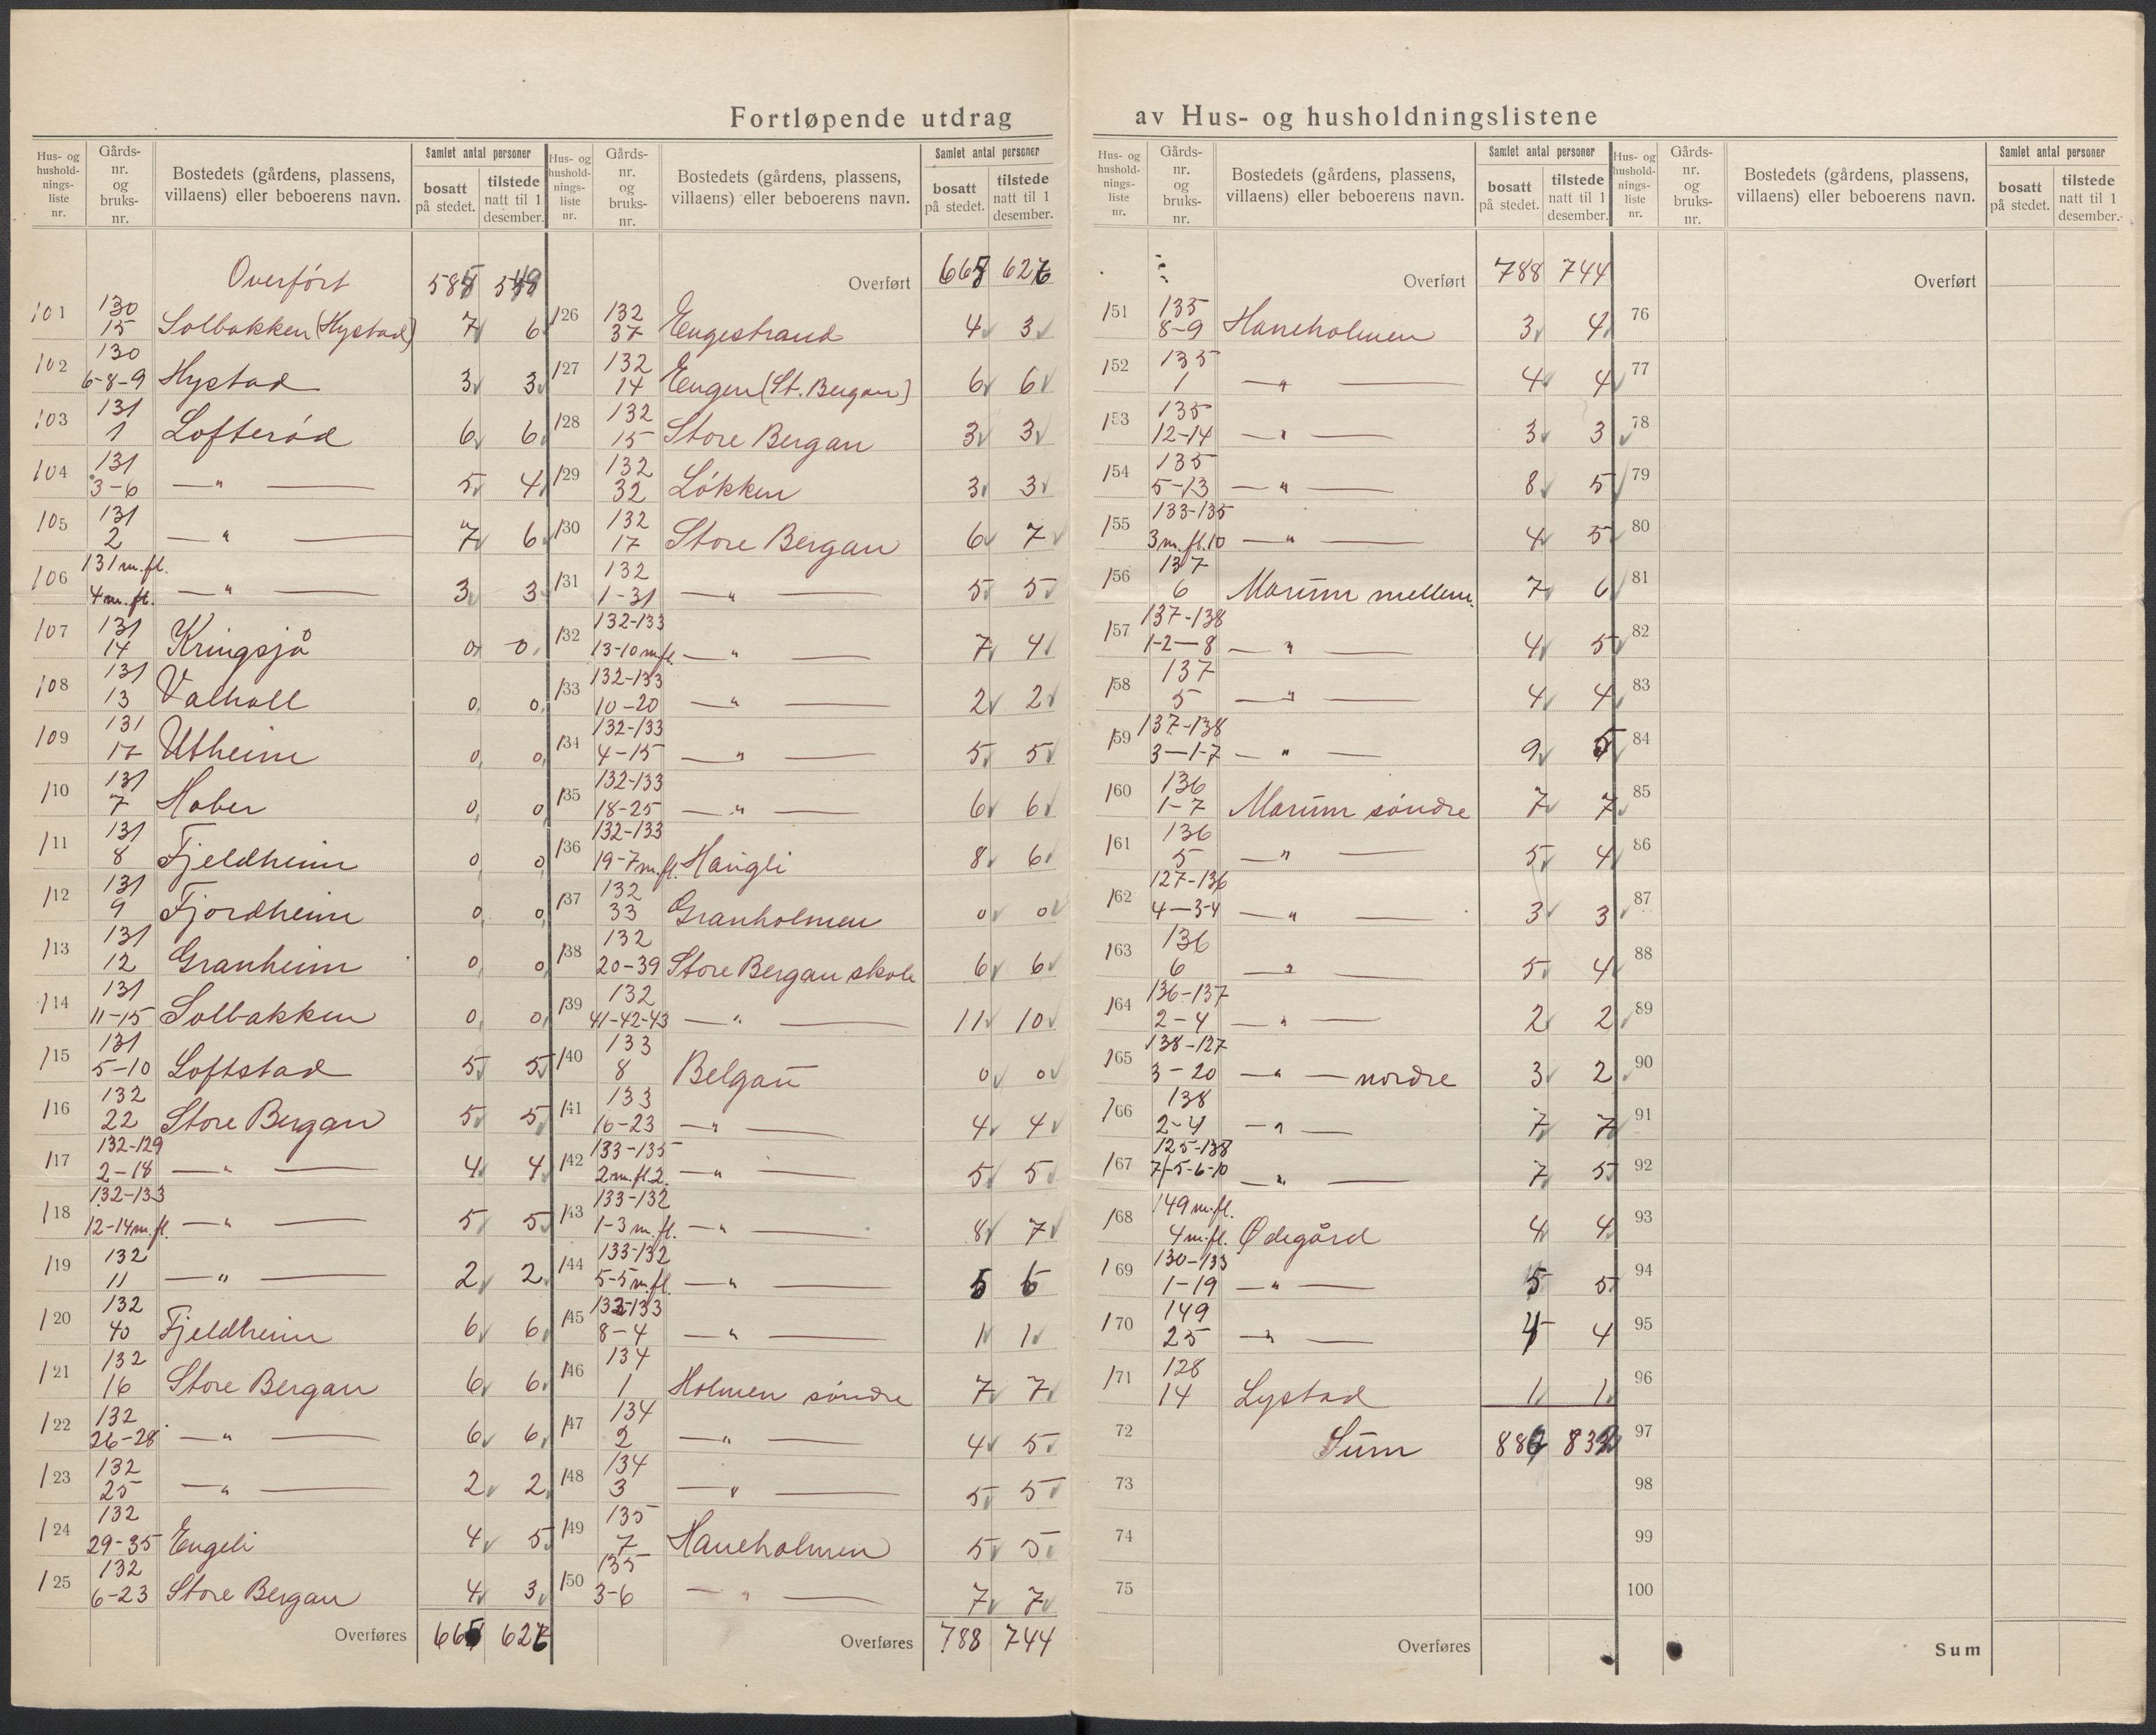 Fortløpende utdrag av Hus- og husholdningslistene
Hus- og hushold- nings- liste nr. | Gårds- nr. og bruks- nr. | Bostedets (gårdens, plassens, villaens) eller beboerens navn. | Samlet antal personer | bosatt på stedet. | tilstede natt til 1 desember.
Overført
101 130 15 Solbakken (Hystad) 7 6
102 130 6-8-9 Hystad 3 3
103 131 1 Lofterød 6 6
104 131 3-6 —"— 5 4
105 131 2 —"— 7 6
106 131 m.fl. 4 m.fl. —"— 3 3
107 131 14 Kringsjå 0 0
108 131 13 Valhall 0 0
109 131 17 Utheim 0 0
110 131 7 Haber 0 0
111 131 8 Fjeldheim 0 0
112 131 9 Fjordheim 0 0
113 131 12 Granheim 0 0
114 131 11-15 Solbakken 0 0
115 131 5-10 Loftstad 5 5
116 132 22 Store Bergan 5 5
117 132-129 2-18 —"— 4 4
118 132-133 12-14 m.fl. —"— 5 5
119 132 11 —"— 2 2
120 132 40 Fjeldheim 6 6
121 132 16 Store Bergan 6 6
122 132 26-28 —"— 6 6
123 132 25 —"— 2 2
124 132 29-35 Engeli 4 5
125 132 6-23 Store Bergan 4 3
Overføres
Hus- og hushold- nings- liste nr. | Gårds- nr. og bruks- nr. | Bostedets (gårdens, plassens, villaens) eller beboerens navn. | Samlet antal personer | bosatt på stedet. | tilstede natt til 1 desember.
Overført
126 132 37 Engestrand 4 3
127 132 14 Engen (St. Bergan) 6 6
128 132 15 Store Bergan 3 3
129 132 32 Løkken 3 3
130 132 17 Store Bergan 6 7
131 132 1-31 —"— 5 5
132 132-133 13-10 m.fl. —"— 7 4
133 132-133 10-20 —"— 2 2
134 132-133 4-15 —"— 5 5
135 132-133 18-25 —"— 6 6
136 132-133 19-7 m.fl. Haugli 8 6
137 132 33 Granholmen 0 0
138 132 20-39 Store Bergan skole 6 6
139 132 41-42-43 —"— 11 10
140 133 8 Belgau 0 0
141 133 16-23 —"— 4 4
142 133-135 2 m.fl. 2. —"— 5 5
143 133-132 1-3 m.fl. —"— 8 7
144 133-132 5-5 m.fl. —"— 5
145 8-4 —"— 1 1
146 134 1 Holmen søndre 7 7
147 134 2 —"— 4 5
148 134 3 —"— 5 5
149 135 7 Haneholmen 5 5
150 135 3-6 —"— 7 7
Overføres 788 744
Hus- og hushold- nings- liste nr. | Gårds- nr. og bruks- nr. | Bostedets (gårdens, plassens, villaens) eller beboerens navn. | Samlet antal personer | bosatt på stedet. | tilstede natt til 1 desember.
Overført 788 744
151 135 8-9 Haneholmen 3 4
152 135 1 —"— 4 4
153 135 12-14 —"— 3 3
154 135 5-13 —"— 8 5
155 133-135 3 m.fl. 10 —"— 4 5
156 137 6 Marum mellem. 7 6
157 137-138 1-2-8 —"— 4 5
158 137 5 —"— 4 4
159 137-138 3-1-7 —"— 9 5
160 136 1-7 Marum søndre 7 7
161 136 5 —"— 5 4
162 127-136 4-3-4 —"— 3 3
163 136 6 —"— 5 4
164 136-137 2-4 —"— 2 2
165 138-127 3-20 —"— nordre 3 2
166 138 2-4 —"— 7 7
167 125-138 7-5-6-10 —"— 7 5
168 149 m.fl. 4 m.fl. Ødegård 4 4
169 130-133 1-19 —"— 5 5
170 149 25 —"— 4 4
171 128 14 Lystad 1 1
72 Sum
73
74
75
Overføres
Hus- og hushold- nings- liste nr. | Gårds- nr. og bruks- nr. | Bostedets (gårdens, plassens, villaens) eller beboerens navn. | Samlet antal personer | bosatt på stedet. | tilstede natt til 1 desember.
Overført
76
77
78
79
80
81
82
83
84
85
86
87
88
89
90
91
92
93
94
95
96
97
98
99
100
Sum